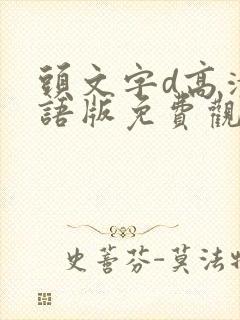 頭文字d高清
語版免費觀
史蒼芬-莫法特